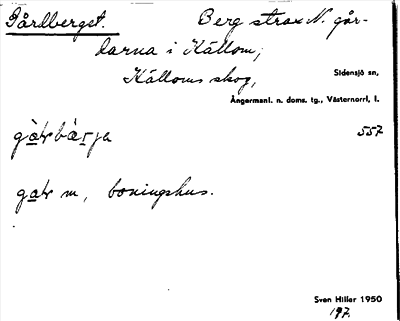 Gårdberget. Berg strax N. går-
darna i Källom,
Källoms skog, Sidensjö sn,
Ångermanl. n. doms. tg., Västernorrl. l.
557
gatr m, boningshus.
Sven Hiller 1950
197.